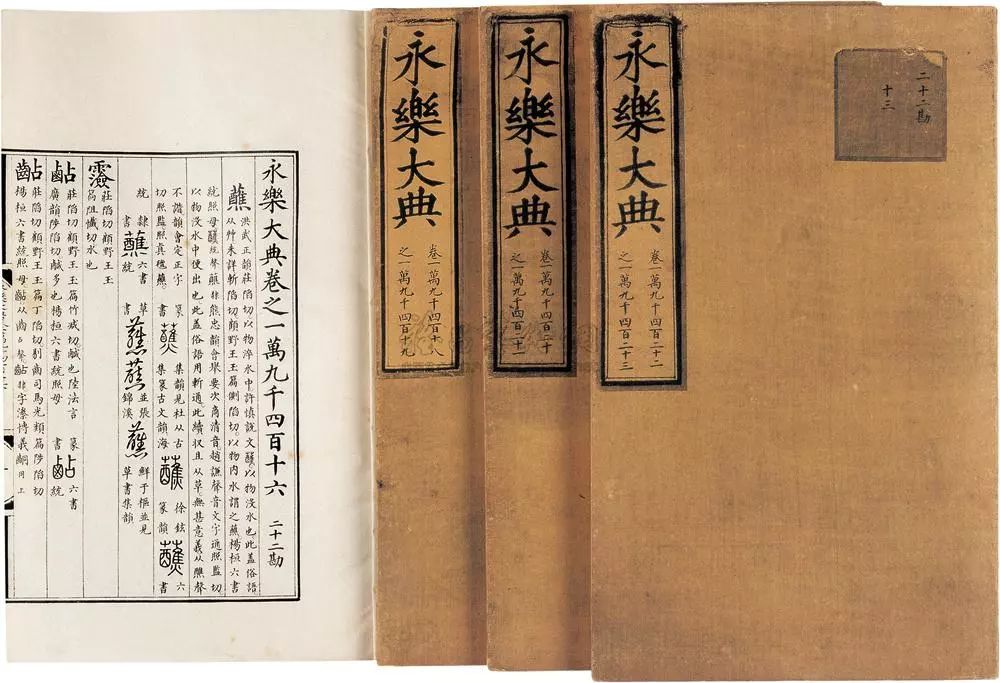 二十二勘
十三
永樂大典
卷一萬九千四百二十二
之一萬九千四百二十三
永樂大典
卷一萬九千四百二十
之一萬九千四百二十一
永樂大典
卷一萬九千四百十八
之一萬九千四百十九
永樂大典卷之一萬九千四百十六 二十二勘
蘸 洪武正韻莊陷切以物淬水中許慎說文蘸以物沒水也此蓋俗語
从艸未詳斬陷切顧野王玉篇側陷切以物內水謂之蘸楊桓六書
統照母 聲蘸非 忠韻會舉要次商清音趙謙聲音文字通照監切
以物沒水中便出也此蓋俗語用斬通此續収且从草無甚意義从醮聲
不諧韻會定正字 篆 集韻見杜从古 徐鉉 六
切照監照真氊蘸 書 蘸 集篆古文韻海 蘸 篆韻 蘸 書
統 隸 六書 草 並張 鮮于樞並見
書 蘸 統 書 蘸 蘸 錦溪 蘸 草書集韻
莊陷切顧野王玉
篇阻懺切水也
莊陷切顧野王玉篇竹咸切鹹也陸法言 篆 六書
廣韻陟陷切鹹多也楊桓六書統照母 書 統
莊陷切顧野王玉篇丁陷切 司馬光類篇陟陷切
楊桓六書統照母 从齒占聲 非字潫博義 同上